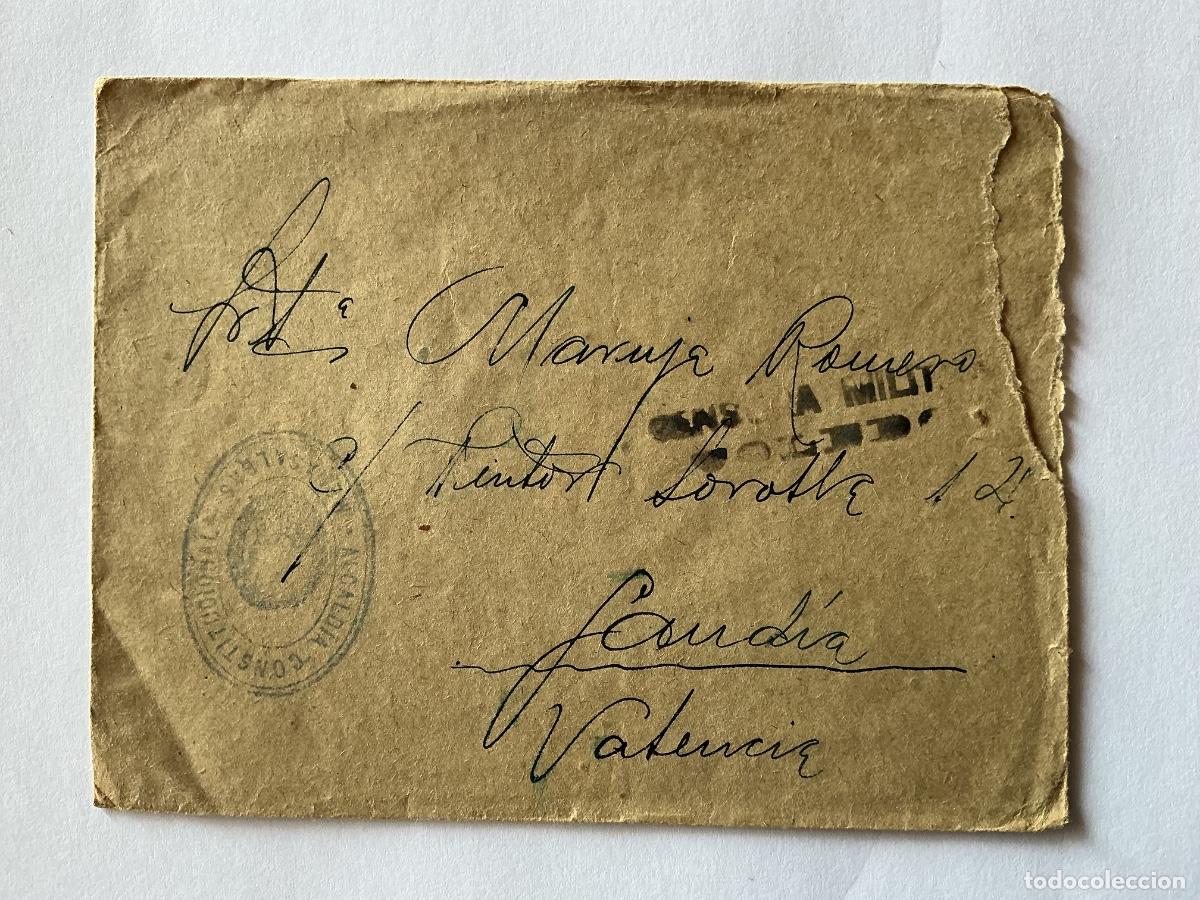 Srta Maruja Romero
CENS A MILIT
c/ Pintor Sorolla 12
Gandía
Valencia
ALCALDIA CONSTITUCIONAL
todocoleccion